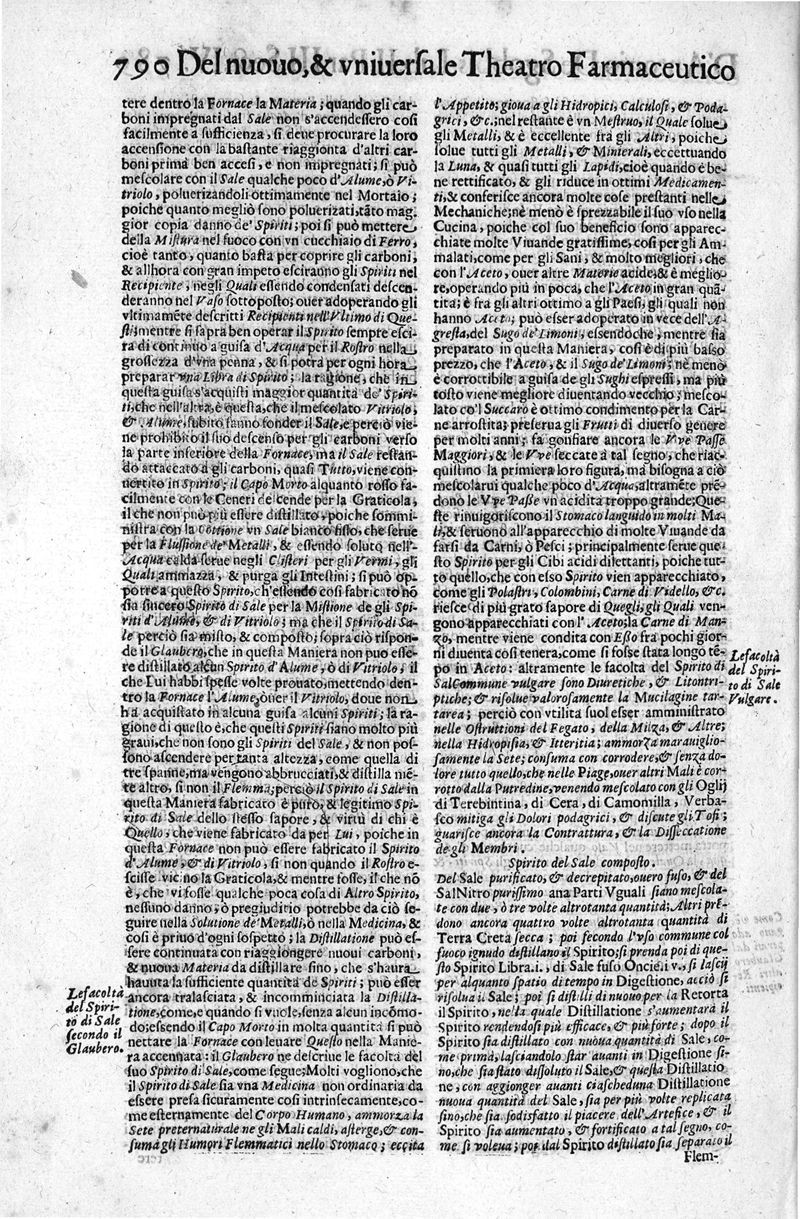 790 Del nuouo, & vniuersale Theatro Farmaceutico
tere dentro la Fornace la Materia; quando gli car-
boni impregnati dal Sale non s'accendessero cosi
facilmente a sufficienza, si deue procurare la loro
accensione con la bastante riaggionta d'altri car-
boni prima ben accesi, e non impregnati; si può
mescolare con il Sale qualche poco d'Alume, ò Vi-
triolo, poluerizandoli ottimamente nel Mortaio;
poiche quanto megliò sono poluerizati, tãto mag-
gior copia danno de' Spiriti; poi si può mettere
della Mistura nel fuoco con vn cucchiaio di Ferro,
cioè tanto, quanto basta per coprire gli carboni,
& allhora con gran impeto esciranno gli Spiriti nel
Recipiente, negli Quali essendo condensati descen-
deranno nel Vaso sottoposto; ouer adoperando gli
vltimamẽte descritti Recipienti nell'Vltimo di Que-
sti; mentre si saprà ben operar il Spirito sempre esci-
rà di continuo a guisa d'Acqua per il Rostro nella
grossezza d'vna penna, & si potrà per ogni hora
preparar vna Libra di Spirito; la ragione, che in
questa guisa s'acquisti maggior quantità de' Spiri-
ti, che nell'altra, è questa, che il mescolato Vitriolo,
& Alume, subito fanno fonder il Sale, e perciò vie-
ne prohibito il suo descenso per gli carboni verso
la parte inferiore della Fornace, ma il Sale restan-
do attaccato a gli carboni, quasi Tutto, viene con-
uertito in Spirito; il Capo Morto alquanto rosso fa-
cilmente con le Ceneri descende per la Graticola,
il che non può più essere distillato, poiche sommi-
nistra con la Cottione vn Sale bianco fisso, che serue
per la Flussione de' Metalli, & essendo soluto nell'
Acqua calda serue negli Clisteri per gli Vermi, gli
Quali ammazza, & purga gli Intestini; si può op-
porre a questo Spirito, ch'essendo cosi fabricato nõ
sia sincero Spirito di Sale per la Mistione de gli Spi-
riti d'Alume, & di Vitriolo; ma che il Spirito di Sa-
le perciò sia misto, & composto; sopra ciò rispon-
de il Glaubero, che in questa Maniera non può esse-
re distillato alcun Spirito d'Alume, ò di Vitriolo; il
che Lui habbi spesse volte prouato, mettendo den-
tro la Fornace l'Alume, ouer il Vitriolo, doue non
hà acquistato in alcuna guisa alcuni Spiriti; la ra-
gione di questo è, che questi Spiriti siano molto più
graui, che non sono gli Spiriti del Sale, & non pos-
sono ascendere per tanta altezza, come quella di
tre spanne, ma vengono abbrucciati, & distilla niẽ-
te altro, si non il Flemma; perciò il Spirito di Sale in
questa Maniera fabricato è puro, & legitimo Spi-
rito di Sale dello stesso sapore, & virtù di chi è
Quello, che viene fabricato da per Lui, poiche in
questa Fornace non può essere fabricato il Spirito
d'Alume, & di Vitriolo, si non quando il Rostro e-
scisse vicino la Graticola, & mentre fosse, il che nõ
è, che vi fosse qualche poca cosa di Altro Spirito,
nessuno danno, ò pregiuditio potrebbe da ciò se-
guire nella Solutione de' Metalli, ò nella Medicina, &
cosi è priuo d'ogni sospetto; la Distillatione può es-
sere continuata con riaggiongere nuoui carboni,
& nuoua Materia da distillare sino, che s'haurà
hauuta la sufficiente quantità de Spiriti; può esser
ancora tralasciata, & incomminciata la Distilla-
tione, come, e quando si vuole, senza alcun incõmo-
do; essendo il Capo Morto in molta quantità si può
nettare la Fornace con leuare Questo nella Manie-
ra accennata: il Glaubero ne descriue le facoltà del
suo Spirito di Sale, come segue; Molti vogliono, che
il Spirito di Sale sia vna Medicina non ordinaria da
essere presa sicuramente cosi intrinsecamente, co-
me esternamente del Corpo Humano, ammorza la
Sete preternaturale ne gli Mali caldi, asterge, & con-
suma gli Humori Flemmatici nello Stomaco; eccita
Le facoltà
del Spiri-
to di Sale
secondo il
Glaubero.
l'Appetito; gioua a gli Hidropici, Calculosi, & Poda-
grici, &c.; nel restante è vn Mestruo, il Quale solue
gli Metalli, & è eccellente frà gli Altri, poiche
solue tutti gli Metalli, & Minerali, eccettuando
la Luna, & quasi tutti gli Lapidi, cioè quando è be-
ne rettificato, & gli riduce in ottimi Medicamen-
ti, & conferisce ancora molte cose prestanti nelle
Mechaniche; nè menò è sprezzabile il suo vso nella
Cucina, poiche col suo beneficio sono apparec-
chiate molte Viuande gratissime, cosi per gli Am-
malati, come per gli Sani, & molto megliori, che
con l'Aceto, ouer altre Materie acide, & è meglio-
re, operando più in poca, che l'Aceto in gran quã-
tità; è frà gli altri ottimo a gli Paesi, gli quali non
hanno Aceto; può esser adoperato in vece dell'A-
gresta, del Sugo de' Limoni, essendoche, mentre sia
preparato in questa Maniera, cosi è di più basso
prezzo, che l'Aceto, & il Sugo de' Limoni; nè menò
è corrottibile a guisa de gli Sughi espressi, ma più
tosto viene megliore diuentando vecchio; mesco-
lato co'l Succaro è ottimo condimento per la Car-
ne arrostita; preserua gli Frutti di diuerso genere
per molti anni; fà gonfiare ancora le Vve Passe
Maggiori, & le Vve seccate à tal segno, che riac-
quistino la primiera loro figura, ma bisogna a ciò
mescolarui qualche poco d'Acqua, altramẽte prẽ-
donò le Vve Passe vn acidità troppo grande; Que-
ste rinuigoriscono il Stomaco languido in molti Ma-
li, & seruono all'apparecchio di molte Viuande da
farsi da Carni, ò Pesci; principalmente serue que-
sto Spirito per gli Cibi acidi dilettanti, poiche tut-
to quello, che con esso Spirito vien apparecchiato,
come gli Polastri, Colombini, Carne di Vidello, &c.
riesce di più grato sapore di Quegli, gli Quali ven-
gono apparechiati con l'Aceto; la Carne di Man-
zo, mentre viene condita con Esso frà pochi gior-
ni diuenta così tenera, come si fosse stata longo tẽ-
po in Aceto: altramente le facoltà del Spirito di
Sal Commune vulgare sono Diuretiche, & Litontri-
ptiche; & risolue valorosamente la Mucilagine tar-
tarea; perciò con vtilità suol esser amministrato
nelle Ostruttioni del Fegato, della Milza, & Altre;
nella Hidropisia, & Itteritia; ammorza marauiglio-
samente la Sete; consuma con corrodere, & senza do-
lore tutto quello, che nelle Piage, ouer altri Mali è cor-
rotto dalla Putredine, venendo mescolato con gli Oglij
di Terebintina, di Cera, di Camomilla, Verba-
sco mitiga gli Dolori podagrici, & discute gli Tofi;
guarisce ancora la Contrattura, & la Disseccatione
de gli Membri.
Le facoltà
del Spiri-
to di Sale
Vulgare.
Spirito del Sale composto.
Del Sale purificato, & decrepitato, ouero fuso, & del
SalNitro purissimo ana Parti Vguali siano mescola-
te con due, ò tre volte altrotanta quantità; Altri prẽ-
dono ancora quattro volte altrotanta quantità di
Terra Creta secca; poi secondo l'vso commune col
fuoco ignudo distillano il Spirito; si prenda poi di que-
sto Spirito Libra.i., di Sale fuso Oncie.i v., si lascij
per alquanto spatio di tempo in Digestione, acciò si
risolua il Sale; poi si distilli di nuouo per la Retorta
il Spirito, nella quale Distillatione s'aumentarà il
Spirito rendendosi più efficace, & più forte; dopò il
Spirito sia distillato con nuoua quantità di Sale, co-
me prima, lasciandolo star auanti in Digestione si-
no, che sia stato dissoluto il Sale, & questa Distillatio
ne, con aggionger auanti ciascheduna Distillatione
nuoua quantità del Sale, sia per più volte replicata
sino, che sia sodisfatto il piacere dell'Artefice, & il
Spirito sia aumentato, & fortificato a tal segno, co-
me si voleua; poi dal Spirito distillato sia separato il
Flem-